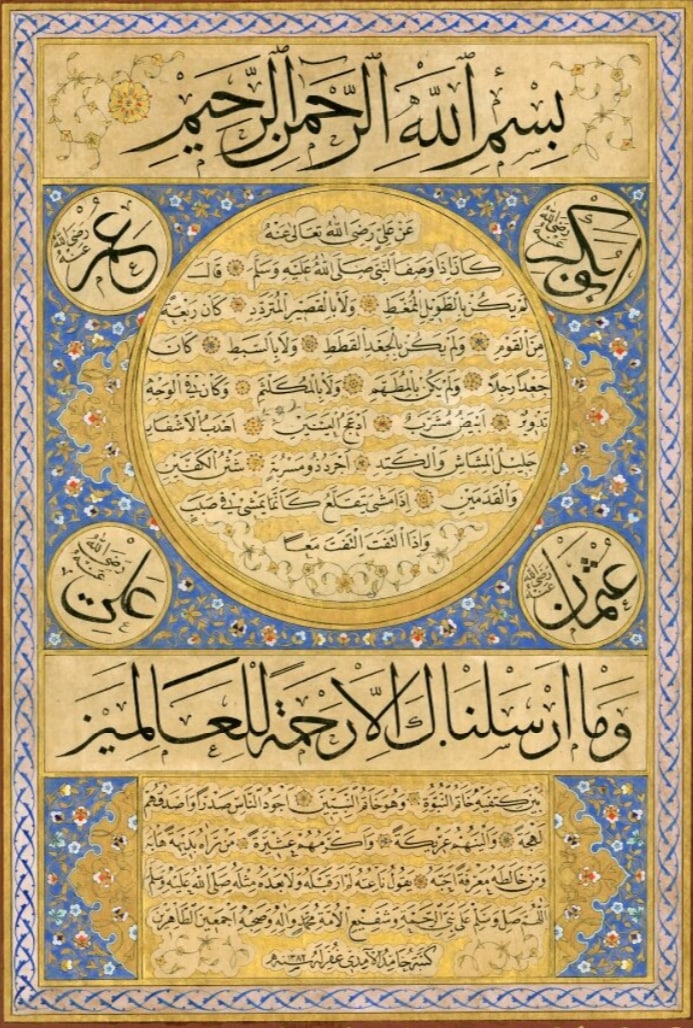 بِسْمِ اللهِ الرَّحْمٰنِ الرَّحِيمِ
ابوبكر رَضِيَ اللهُ عَنْهُ
عُمَر رَضِيَ اللهُ عَنْهُ
عَنْ عَلِيٍّ رَضِيَ اللهُ تَعَالَى عَنْهُ
كَانَ إِذَا وَصَفَ النَّبِيَّ صَلَّى اللهُ عَلَيْهِ وَسَلَّمَ قَالَ
لَمْ يَكُنْ بِالطَّوِيلِ الْمُمَّغِطِ وَلَا بِالْقَصِيرِ الْمُتَرَدِّدِ كَانَ رَبْعَةً
مِنَ الْقَوْمِ وَلَمْ يَكُنْ بِالْجَعْدِ الْقَطَطِ وَلَا بِالسَّبِطِ كَانَ
جَعْدًا رَجِلًا وَلَمْ يَكُنْ بِالْمُطَهَّمِ وَلَا بِالْمُكَلْثَمِ وَكَانَ فِي الْوَجْهِ
تَدْوِيرٌ أَبْيَضُ مُشْرَبٌ أَدْعَجُ الْعَيْنَيْنِ أَهْدَبُ الْأَشْفَارِ
جَلِيلُ الْمُشَاشِ وَالْكَتَدِ أَجْرَدُ ذُو مَسْرُبَةٍ شَثْنُ الْكَفَّيْنِ
وَالْقَدَمَيْنِ إِذَا مَشَى يَتَقَلَّعُ كَأَنَّمَا يَمْشِي فِي صَبَبٍ
وَإِذَا الْتَفَتَ الْتَفَتَ مَعًا
عُثْمَان رَضِيَ اللهُ عَنْهُ
عَلِي رَضِيَ اللهُ عَنْهُ
وَمَا أَرْسَلْنَاكَ إِلَّا رَحْمَةً لِلْعَالَمِينَ
بَيْنَ كَتِفَيْهِ خَاتَمُ النُّبُوَّةِ وَهُوَ خَاتَمُ النَّبِيِّينَ أَجْوَدُ النَّاسِ صَدْرًا وَأَصْدَقُهُمْ
لَهْجَةً وَأَلْيَنُهُمْ عَرِيكَةً وَأَكْرَمُهُمْ عَشِيرَةً مَنْ رَآهُ بَدِيهَةً هَابَهُ
وَمَنْ خَالَطَهُ مَعْرِفَةً أَحَبَّهُ يَقُولُ نَاعِتُهُ لَمْ أَرَ قَبْلَهُ وَلَا بَعْدَهُ مِثْلَهُ صَلَّى اللهُ عَلَيْهِ وَسَلَّمَ
اللّٰهُمَّ صَلِّ وَسَلِّمْ عَلَى نَبِيِّ الرَّحْمَةِ وَشَفِيعِ الْأُمَّةِ مُحَمَّدٍ وَآلِهِ وَصَحْبِهِ أَجْمَعِينَ الطَّاهِرِينَ
كَتَبَهُ حَامِدُ الْآمِدِي غُفِرَ لَهُ سنه ١٣٨٢